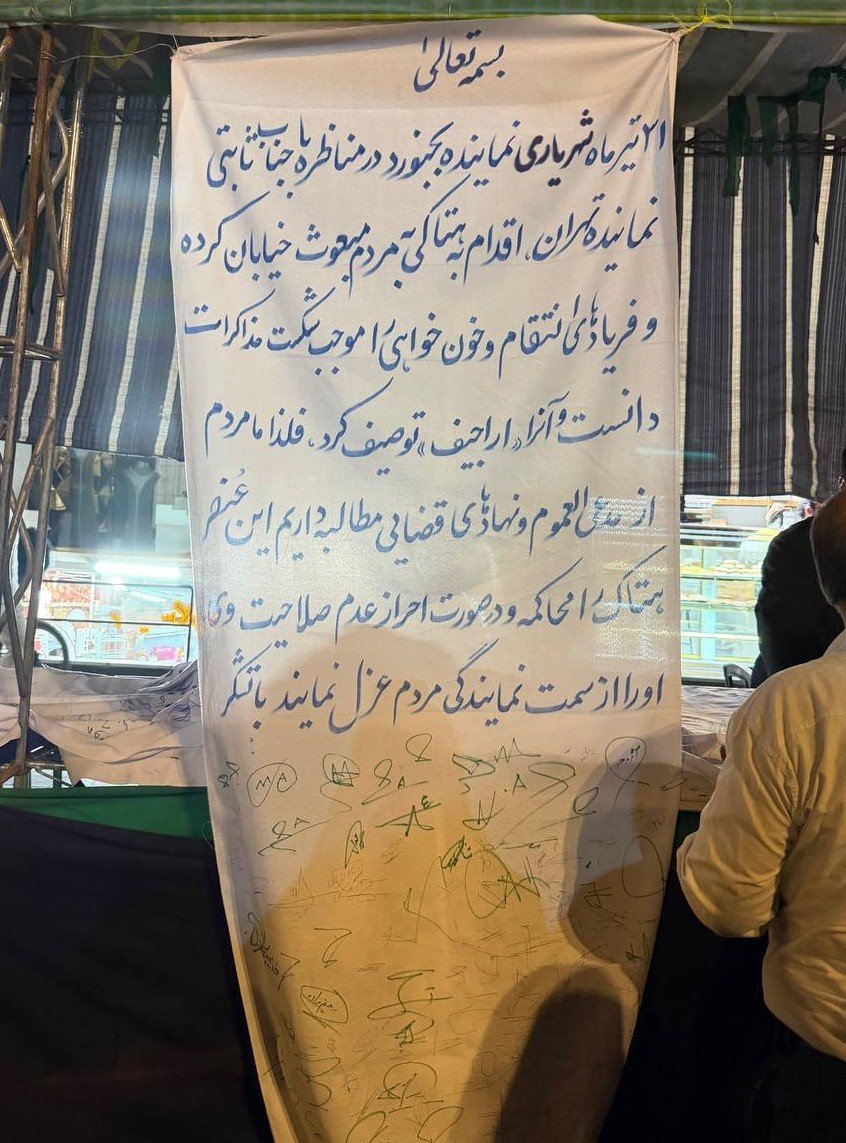 بسمه تعالی
۲۱ تیر ماه شهریاری نماینده بجنورد در مناظره با جناب ثابتی
نماینده تهران، اقدام به هتاکی به مردم مبعوث خیابان کرده
و فریادهای انتقام و خون خواهی را موجب شکست مذاکرات
دانست و آنرا «اراجیف» توصیف کرد، فلذا ما مردم
از مدعی العموم و نهادهای قضایی مطالبه داریم این عُنصر
هتاک را محاکمه و در صورت احراز عدم صلاحیت وی
او را از سمت نمایندگی مردم عزل نمایند با تشکر